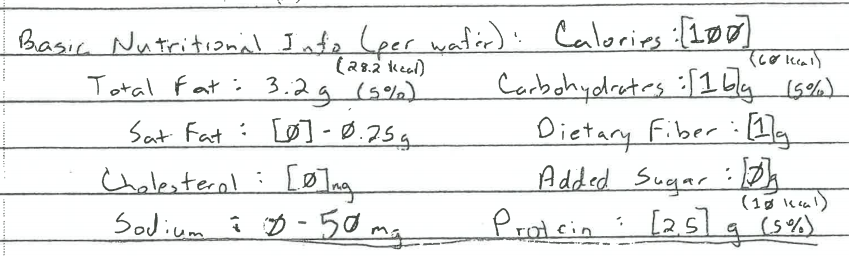 Basic Nutritional Info (per wafer): Calories: [100]
(28.2 kcal) (60 kcal)
Total Fat: 3.2g (5%) Carbohydrates: [16]g (5%)
Sat Fat: [0] - 0.25g Dietary Fiber: [1]g
Cholesterol: [0]mg Added Sugar: [0]g
(10 kcal)
Sodium: 0 - 50 mg Protein: [2.5] g (5%)